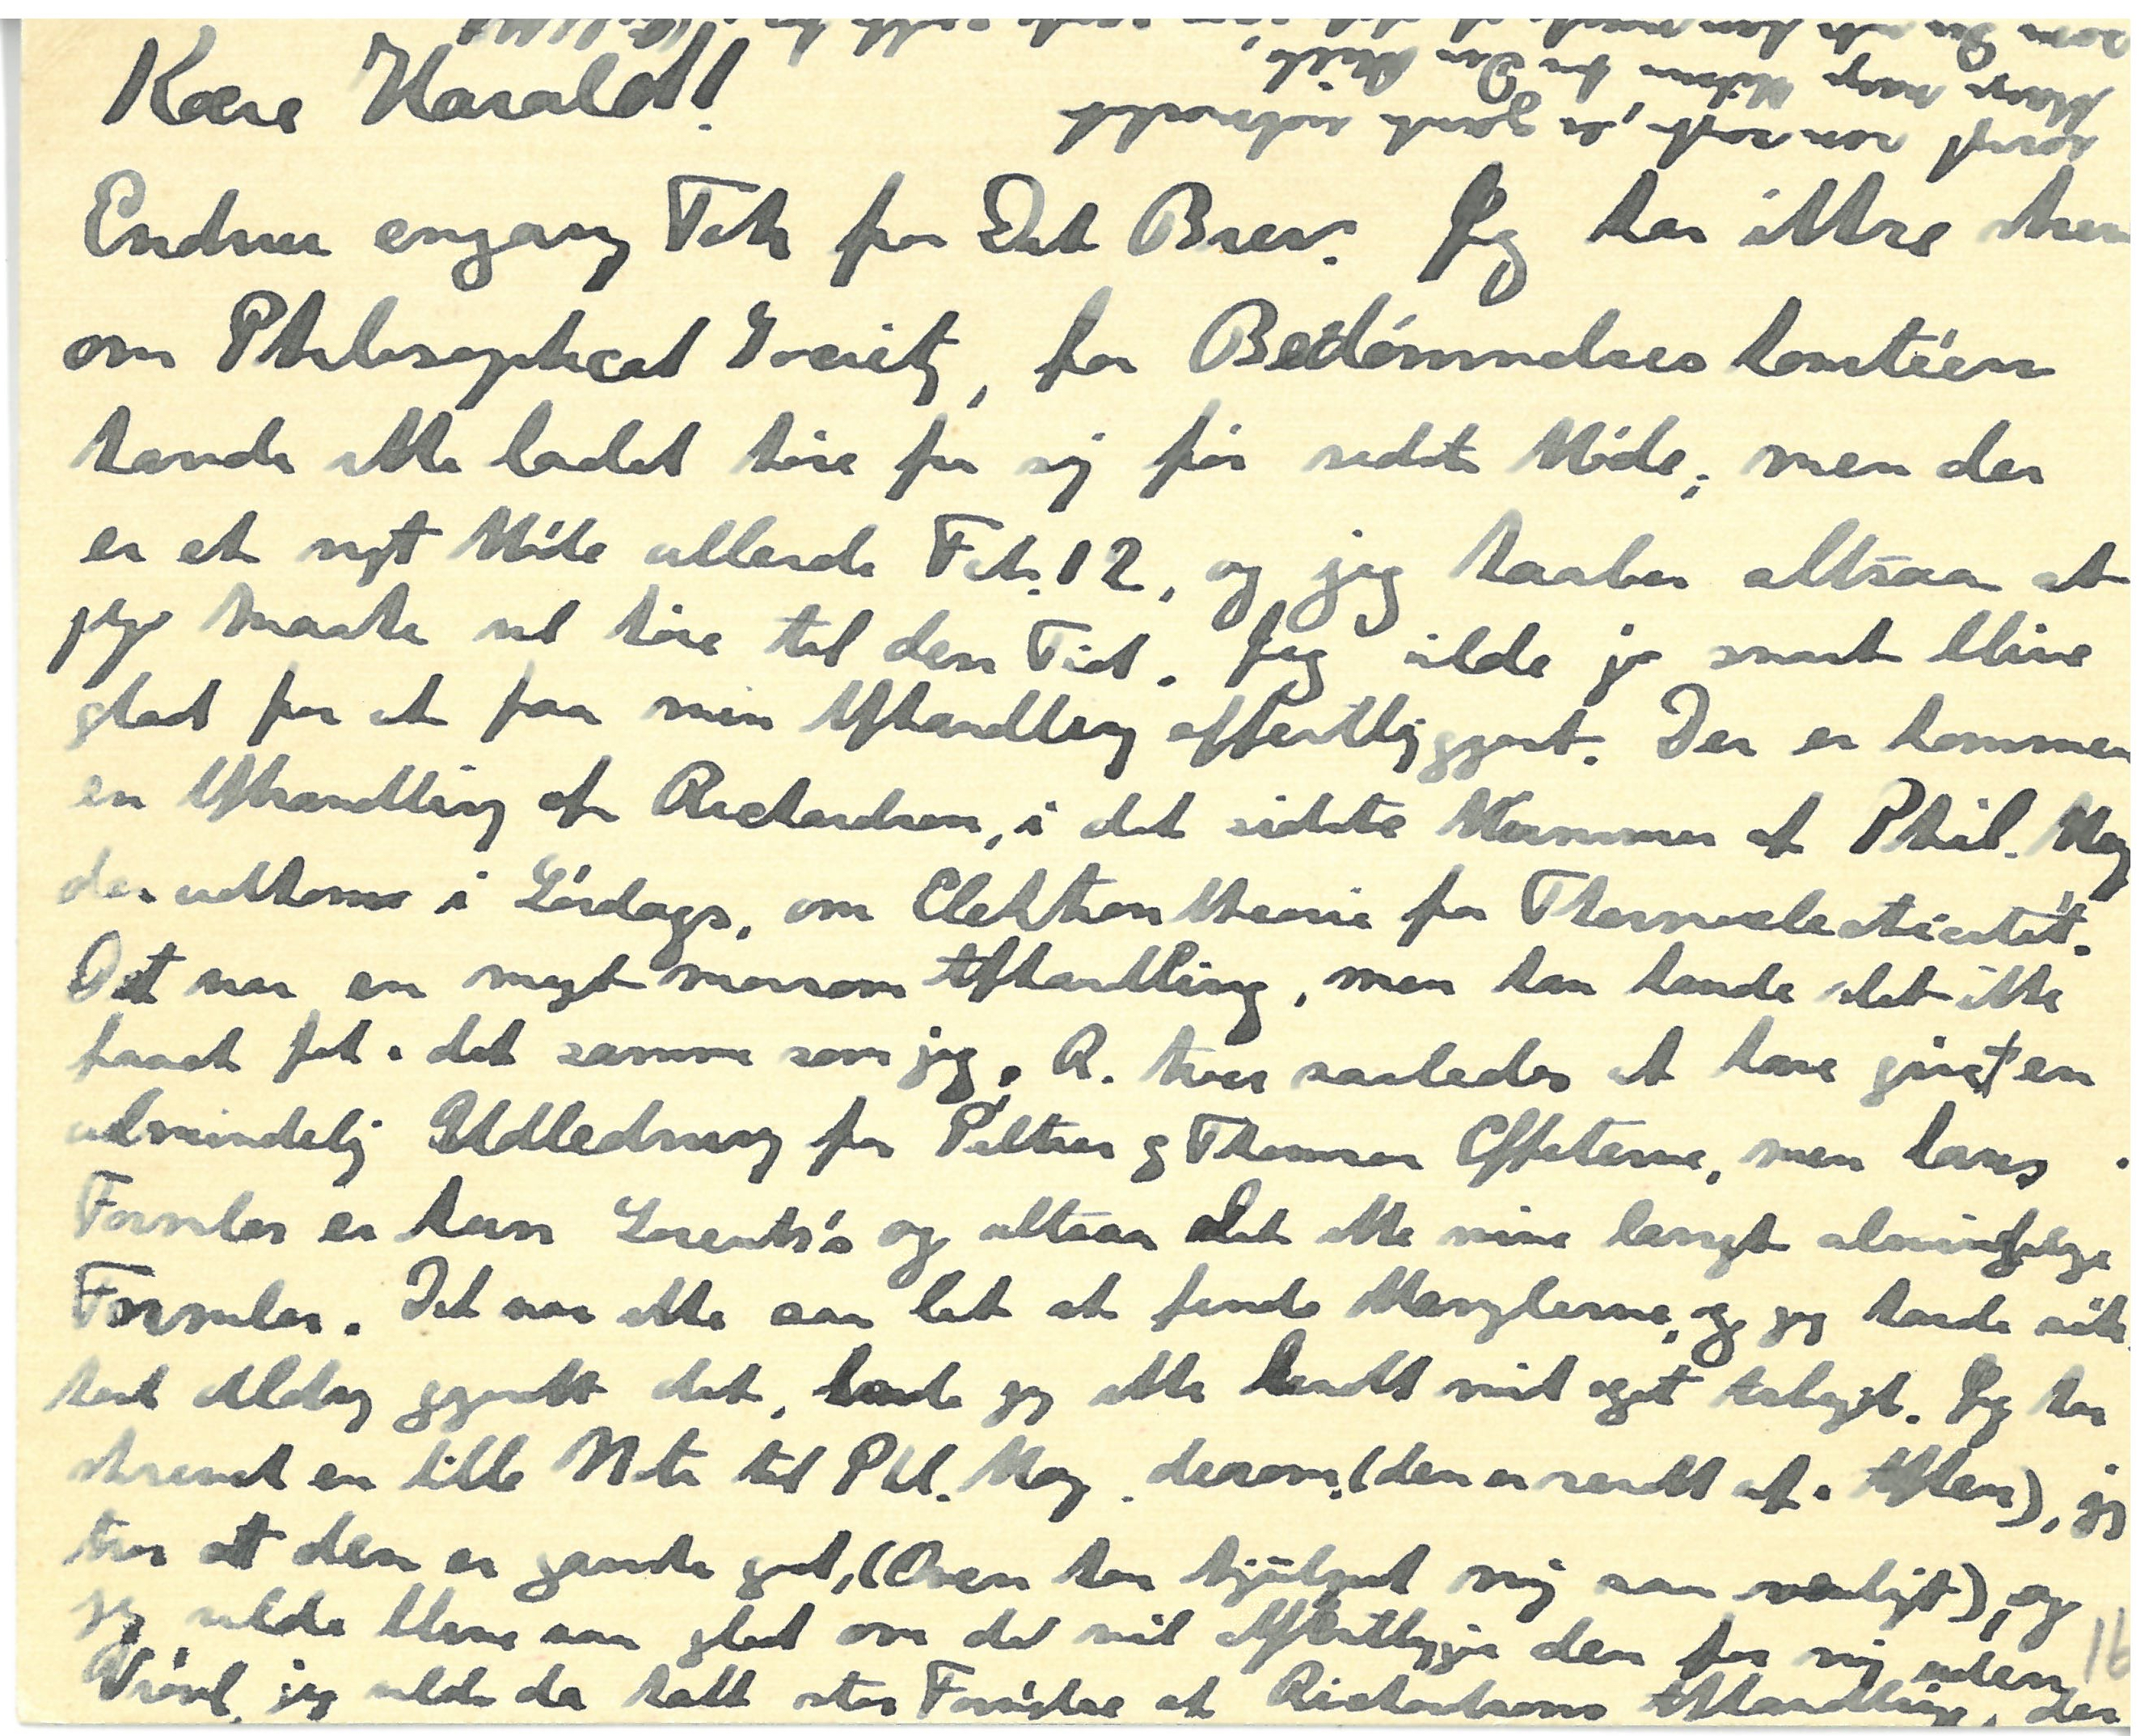 Kære Harald!
Endnu engang Tak for Dit Brev. Jeg har ikke skre
om Philosophical Society, for Bedømmelseskomitéen
havde ikke ladet høre fra sig før sidste Møde; men der
er et nyt Møde allerede Feb. 12, og jeg haaber altsaa at
jeg maaske vil høre til den Tid. Jeg vilde jo snart blive
glad for at faa min Afhandling offentliggjort. Der er kommen
en Afhandling af Richardson, i det sidste Nummer af Phil. Mag
der udkom i Lørdags, om Elektrontheorie for Thermoelectricitet.
Det var en meget morsom Afhandling, men han havde slet ikke
faaet fat i det samme som jeg. R. troer saaledes at have givet en
almindelig Udledning for Peltier og Thomson Effekterne, men hans
Formler er kun Lorentz's og altsaa slet ikke mine langt almindelige
Formler. Det var ikke saa let at finde Manglerne, og jeg havde sik
kert aldrig gjort det, havde jeg ikke kendt mit eget saa. Jeg har
skrevet en lille Note til Phil. Mag. derom, (den er sendt af i Aften), jeg
tror at den er ganske god, (Owen har hjulpet mig saa venligt), og
jeg vilde blive saa glad om de vil offentliggøre den for mig uden
Vrøvl, jeg vilde da have stor Fornøjelse af Richardsons Afhandling, der
først var sagt, er ganske udmærket
Mange mange Hilsner fra Din Niels,